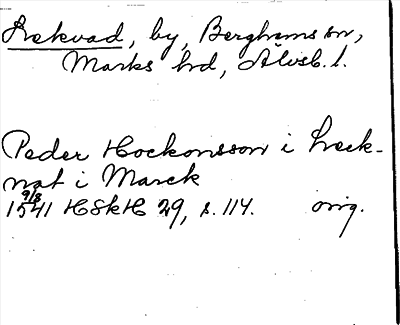 Lekvad, by, Berghems sn,
Marks hd, Älvsb. l.
Peder Hockonsson i Leck-
nat i Marck
9/8
1541 HSkH 29, s. 114. orig.